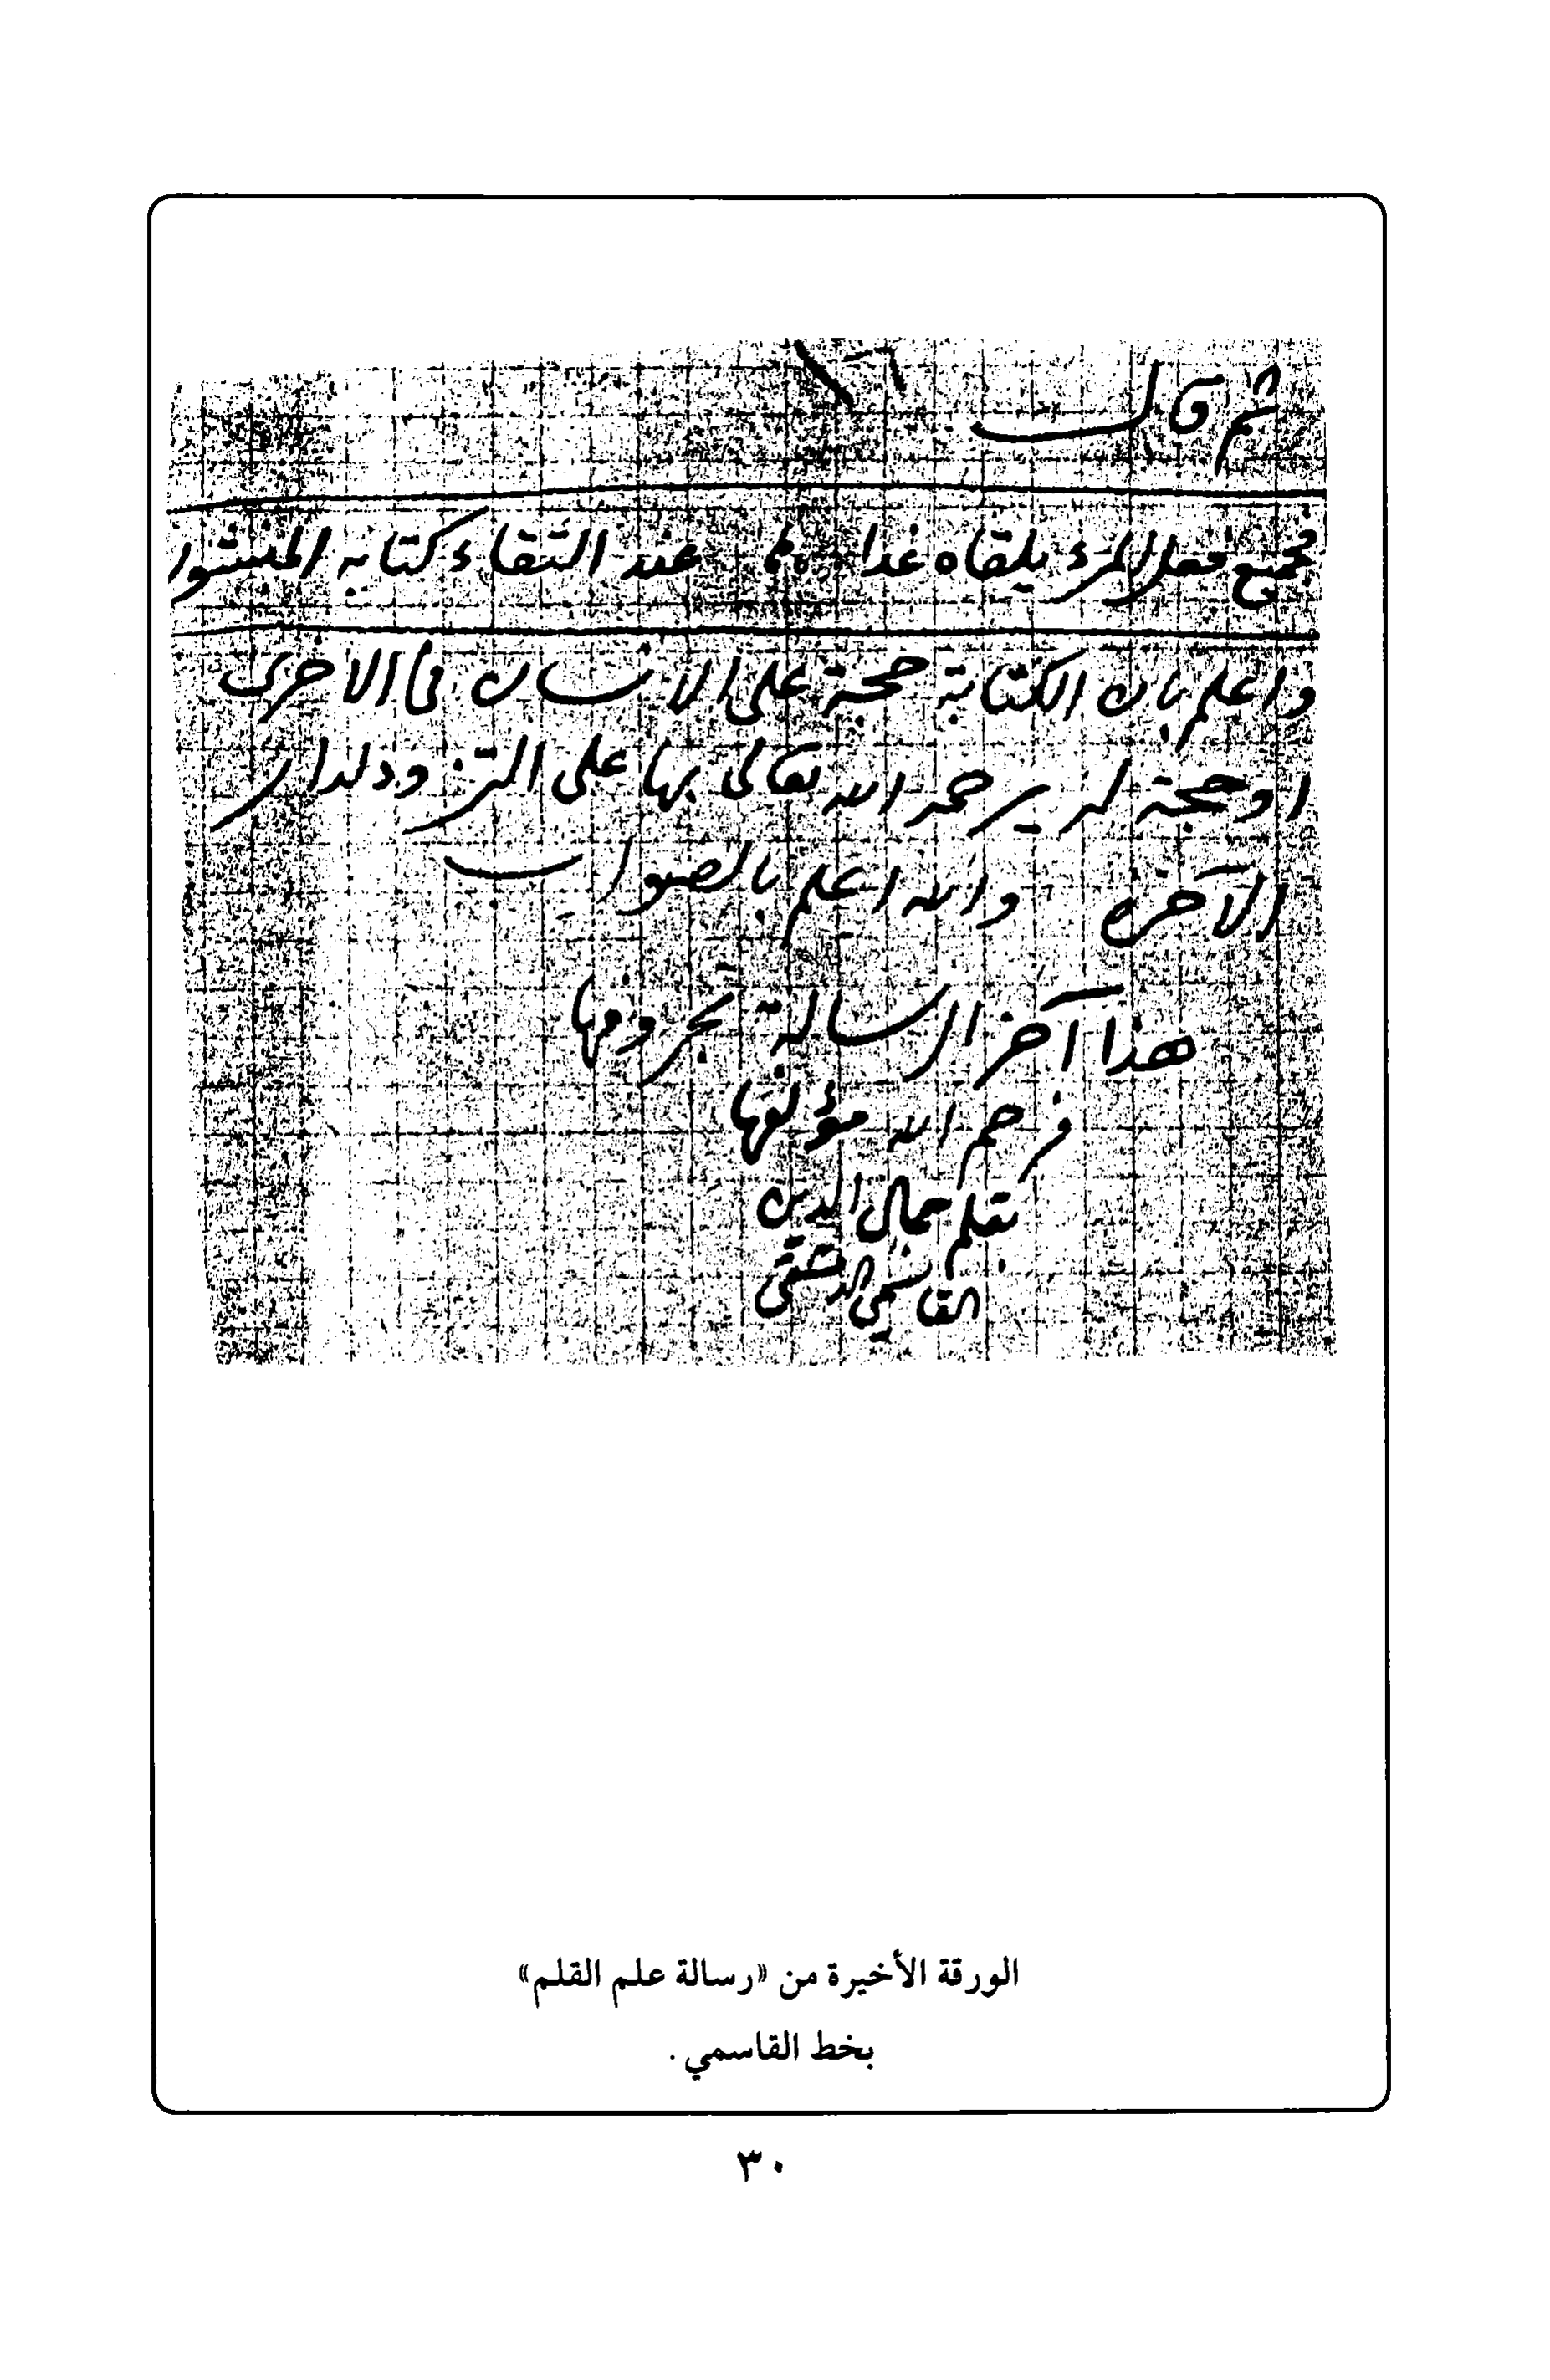 ثم قال
فجميع فعل المرء يلقاه غدا عند التقاء كتابه المنشورا
واعلم بان الكتابة حجة على الانسان فى الاخرى
او حجة له يرحمه الله تعالى بها على التزود لدار
الآخره والله اعلم بالصواب
هذا آخر الرسالة بحروفها
فرحم الله مؤلفها
بقلم جمال الدين
القاسمي الدمشقي
الورقة الأخيرة من «رسالة علم القلم»
بخط القاسمي .
٣٠